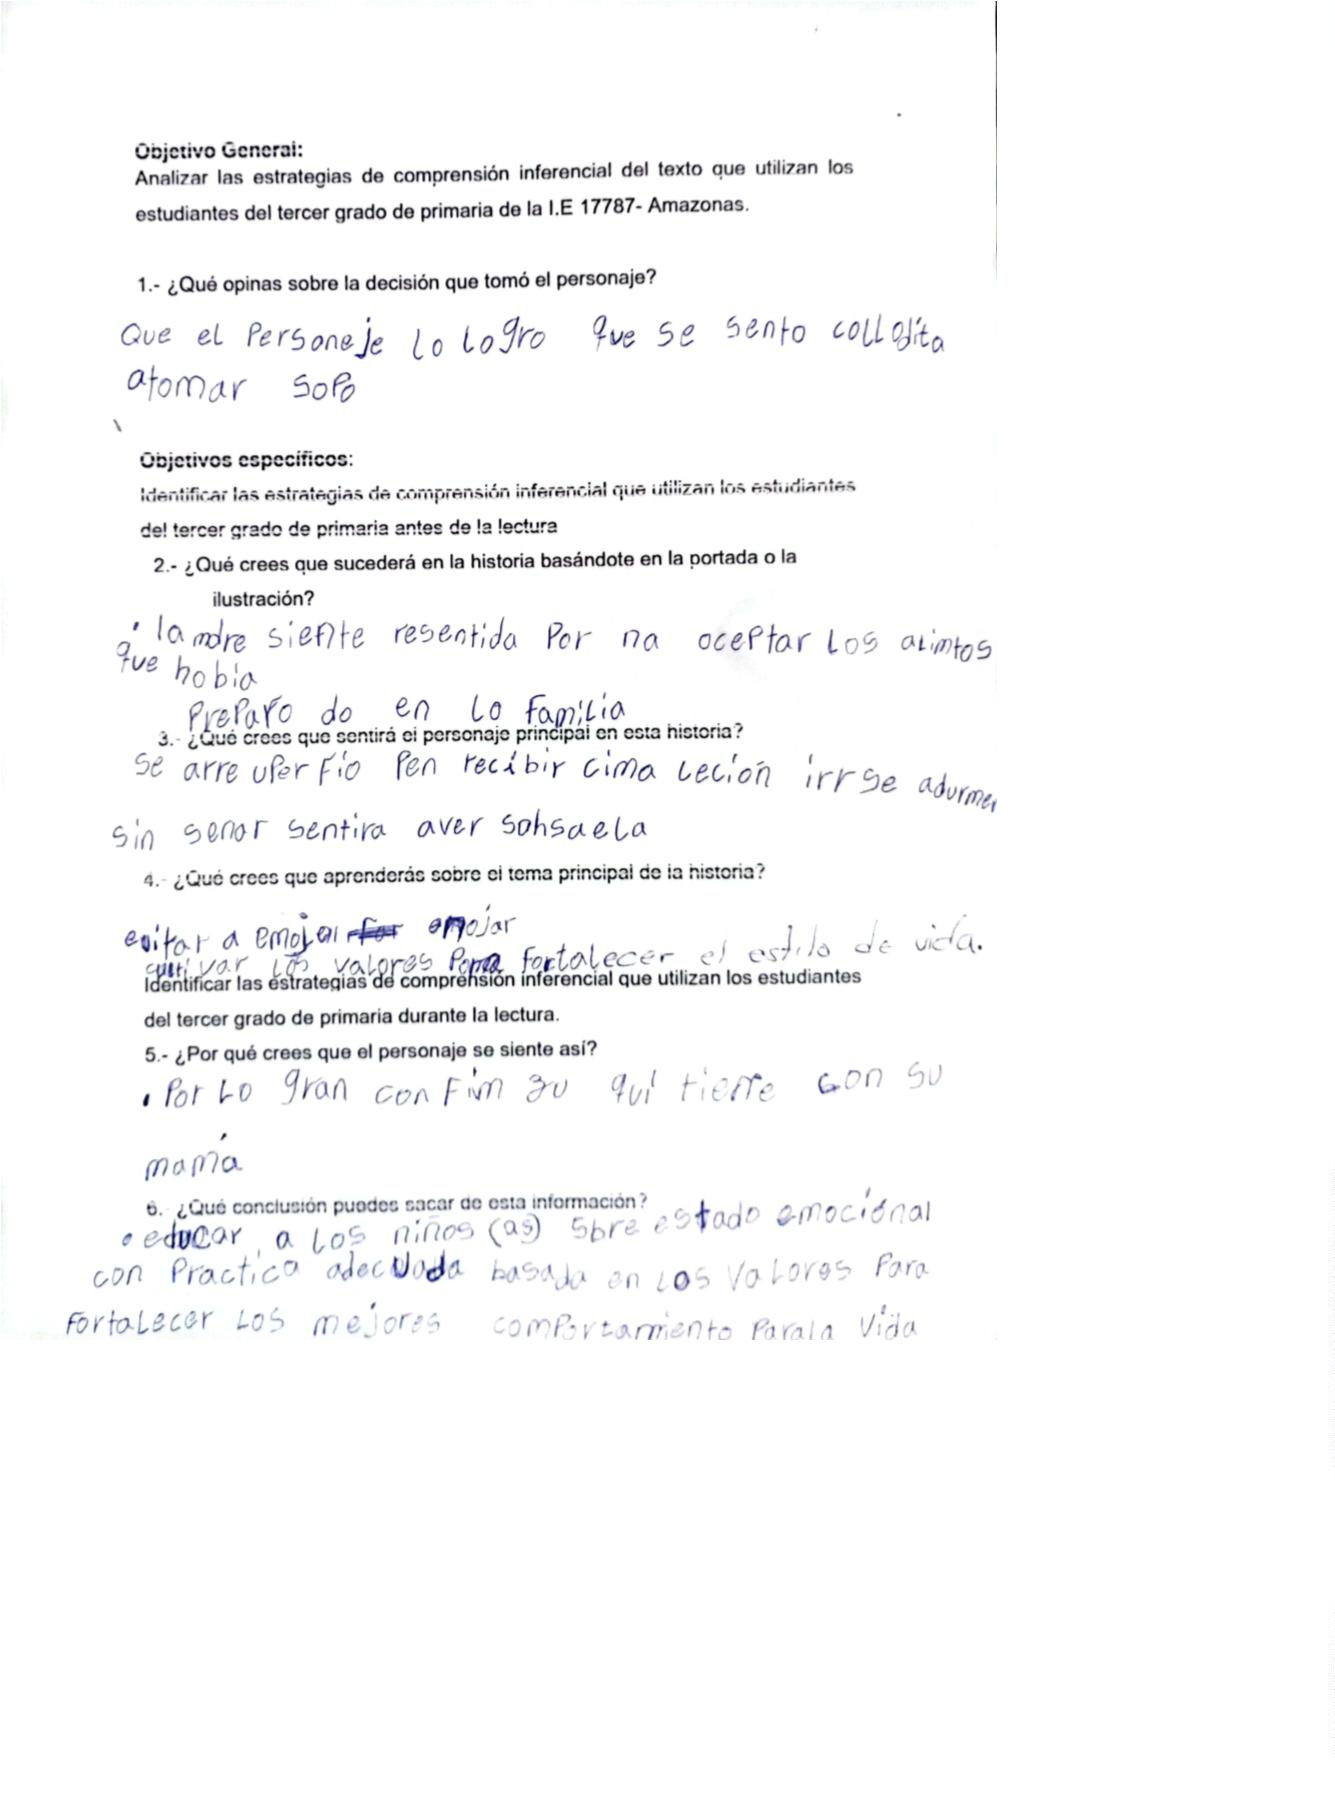 Objetivo General:
Analizar las estrategias de comprensión inferencial del texto que utilizan los
estudiantes del tercer grado de primaria de la I.E 17787- Amazonas.
1.- ¿Qué opinas sobre la decisión que tomó el personaje?
Que el Personeje lo logro que se sento
atomar sopo
Objetivos específicos:
Identificar las estrategias de comprensión inferencial que utilizan los estudiantes
del tercer grado de primaria antes de la lectura
2.- ¿Qué crees que sucederá en la historia basándote en la portada o la
ilustración?
la mdre siente resentida Por na aceptar los alimtos
que hobia
Preparo do en lo familia
3.- ¿Qué crees que sentirá el personaje principal en esta historia?
Se arre recibir leción irrse
sin senar sentira aver
4.- ¿Qué crees que aprenderás sobre el tema principal de la historia?
evitar a emojar
cultivar los valores Para fortalecer el estilo de vida.
Identificar las estrategias de comprensión inferencial que utilizan los estudiantes
del tercer grado de primaria durante la lectura.
5.- ¿Por qué crees que el personaje se siente así?
Por lo gran qui tiene con su
mamá
6. ¿Qué conclusión puedes sacar de esta información?
educar a los niños (as) sbre estado emociónal
con Practica adecuada basada en los valores Para
fortalecer los mejores comportamiento Para la vida